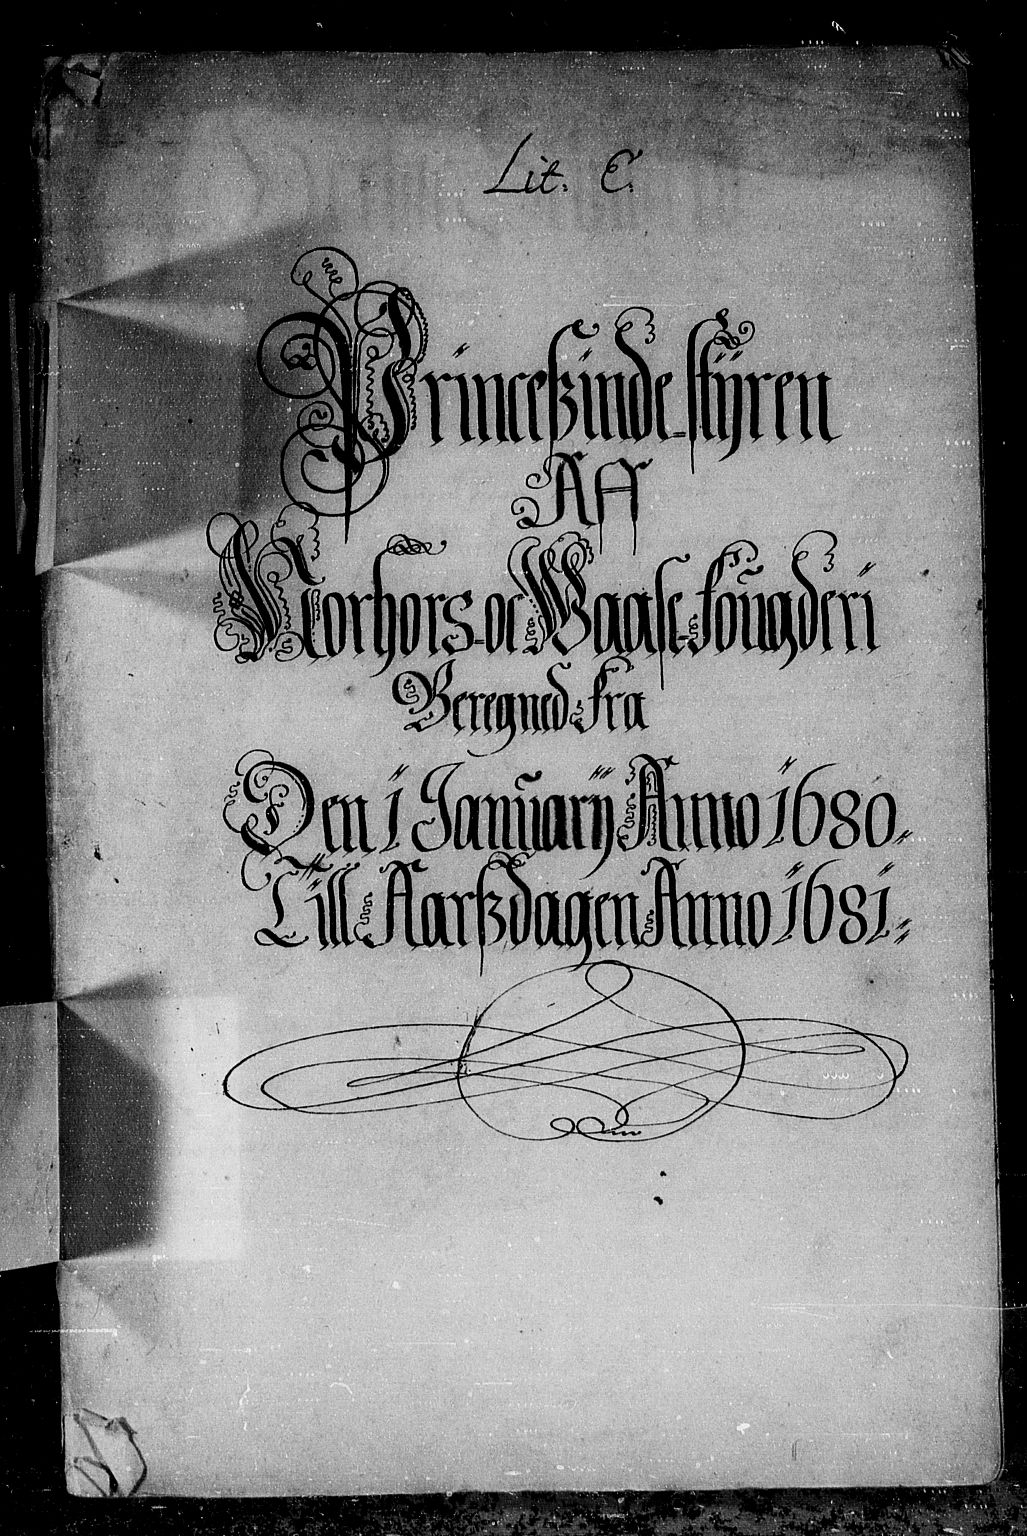 Lit. E.
Princeßinde-styren
Aff
Norhors-oc Waase-fougderi
Beregned fra
Den 1 Januarij Anno 1680.
Till Aarßdagen Anno 1681.